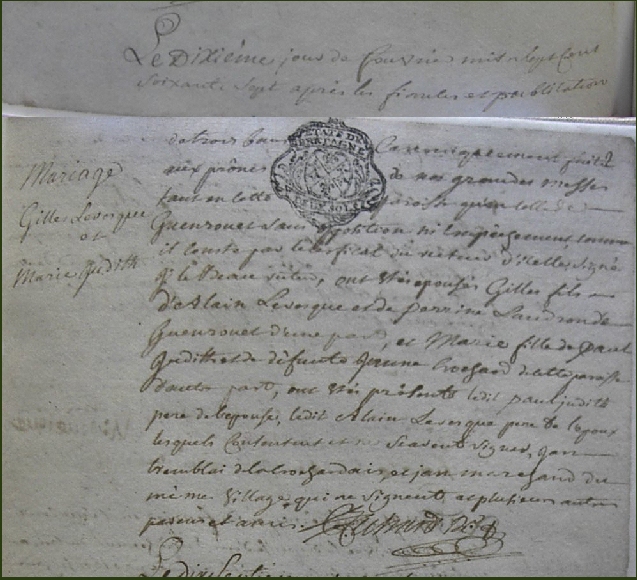 Le Dixième jour de fouvrier mil sept Cent
soixante Sept après les fiancles et publication
de trois ban Canoniquement fait
aux prônes de nos grandes messes
tant en cette paroisse qu'en celle de
Guenrouet sans opposition ni Empêchement comme
il conste par le certificat du recteur d'icelle signé
ont été épousés Gilles fils
d'Alain Levesque et de perrine Landron de
Guenrouet d'une part, et Marie fille de paul
Judith et de défunte Jeanne Crochard de cette paroisse
d'autre part, ont été présents ledit paul judith
pere de lepouse, ledit Alain Levesque pere de lepoux
lesquels Consentent et ne Scavent signer, jan
tremblai de la crochardais, et jan marchand du
même village qui ne signent et plusieurs autres
parens et amis.
Mariage
Gilles Levesque
et
Marie Judith
Le Dix Septième